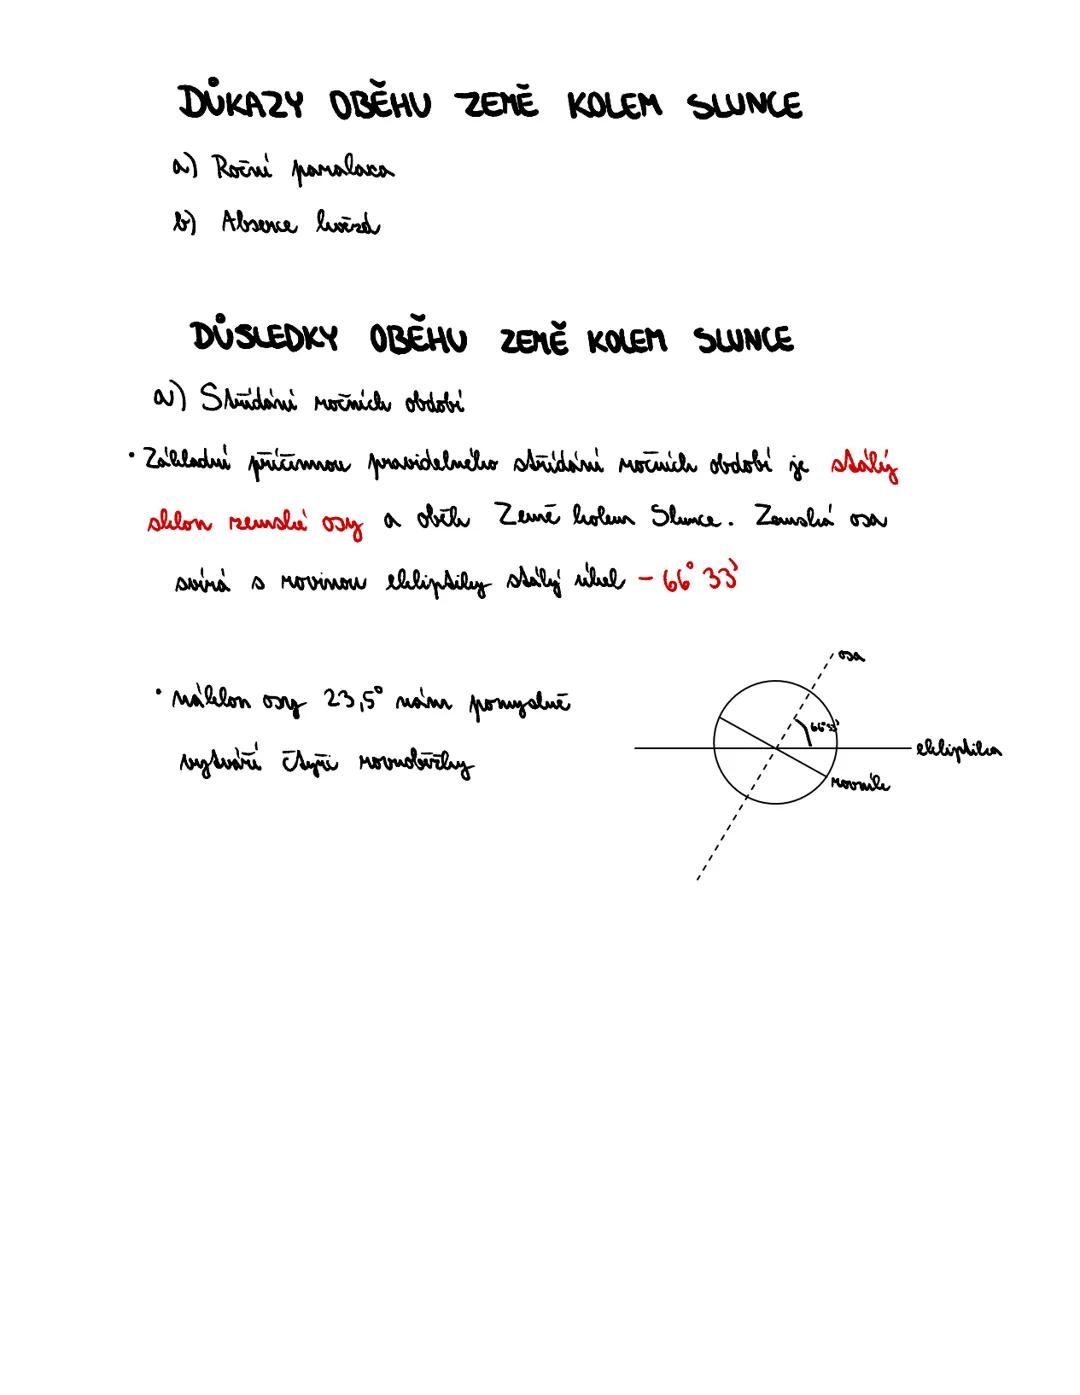 DŮKAZY OBĚHU ZEMĚ KOLEM SLUNCE
a) Roční paralaxa
b) Absence hvězd
DŮSLEDKY OBĚHU ZEMĚ KOLEM SLUNCE
a) Střídání ročních období
• Základní příčinnou pravidelného střídání ročních období je stálý
sklon zemské osy a oběh Země kolem Slunce. Zemská osa
svírá s rovinou ekliptiky stálý úhel - 66° 33'
• náklon osy 23,5° nám pomyslně
vytváří čtyři rovnoběžky
osa
66°33'
ekliptika
rovník